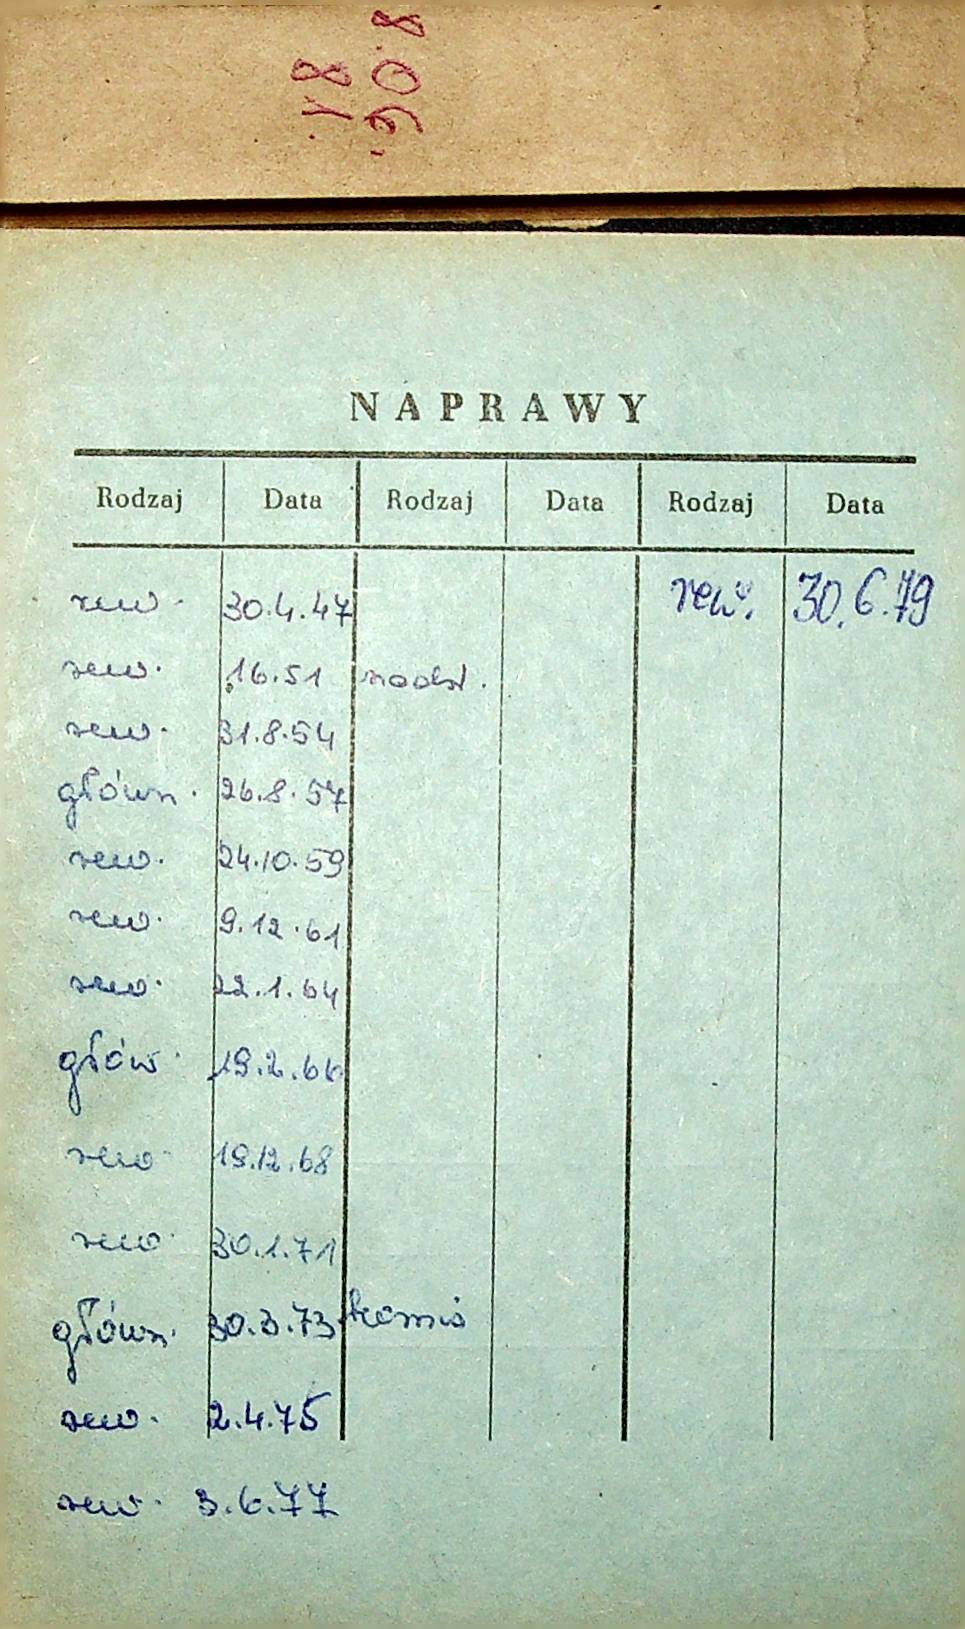 N A P R A W Y
Rodzaj Data Rodzaj Data Rodzaj Data
rew. 30.4.47 rew. 30.6.79
rew. 16.51
rew. 31.8.54
główn. 26.8.57
rew. 24.10.59
rew. 9.12.61
rew. 22.1.64
głów. 19.2.66
rew. 19.12.68
rew. 30.1.71
główn. 30.3.73
rew. 2.4.75
rew. 3.6.77